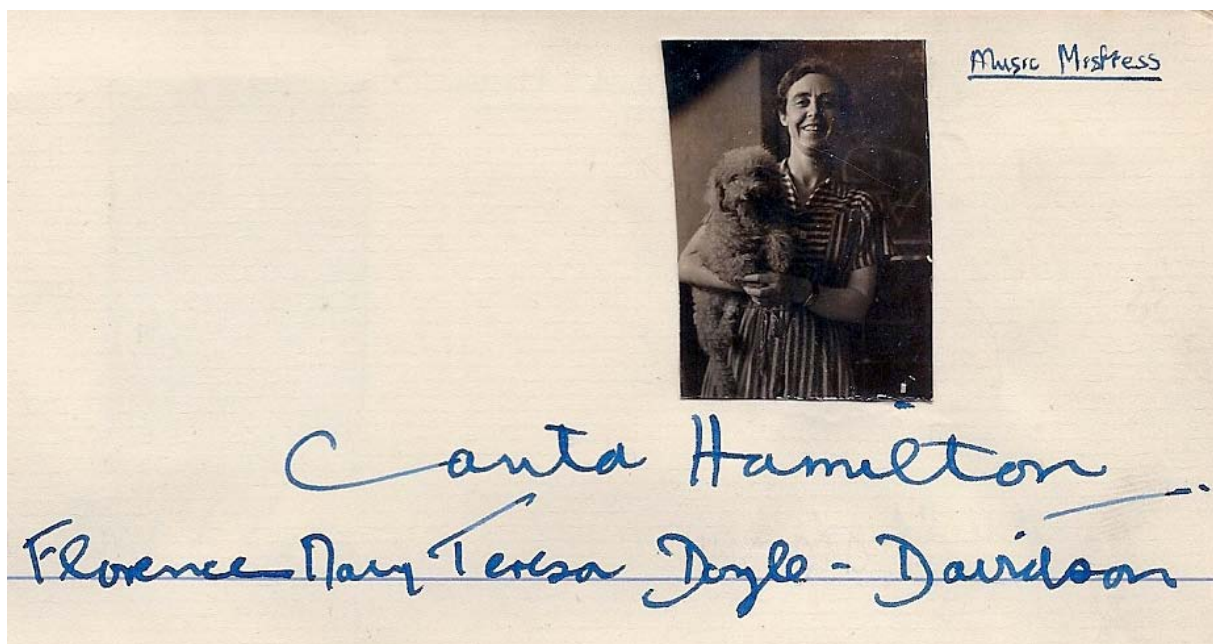 Music Mistress
Canta Hamilton
Florence Mary Teresa Doyle - Davidson